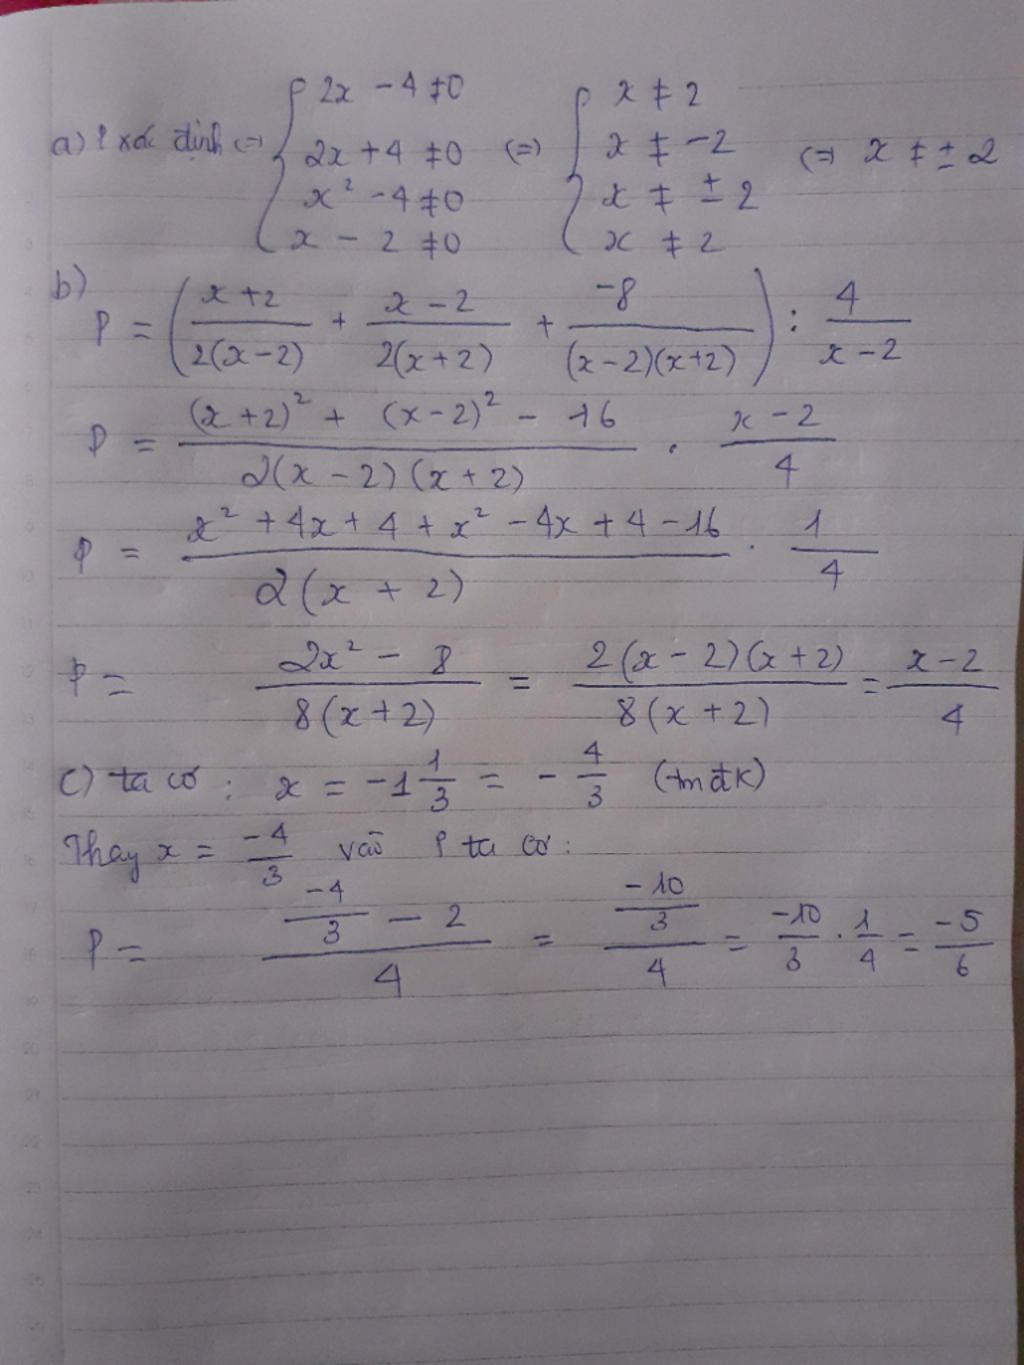 a) P xác định <=> { 2x - 4 ≠ 0 ; 2x + 4 ≠ 0 ; x² - 4 ≠ 0 ; x - 2 ≠ 0 <=> { x ≠ 2 ; x ≠ -2 ; x ≠ ± 2 ; x ≠ 2 <=> x ≠ ± 2
b)
P = ( (x+2)/(2(x-2)) + (x-2)/(2(x+2)) + (-8)/((x-2)(x+2)) ) : 4/(x-2)
P = ((x+2)² + (x-2)² - 16)/(2(x-2)(x+2)) . (x-2)/4
P = (x² + 4x + 4 + x² - 4x + 4 - 16)/(2(x+2)) . 1/4
P = (2x² - 8)/(8(x+2)) = (2(x-2)(x+2))/(8(x+2)) = (x-2)/4
c) ta có : x = -1 1/3 = - 4/3 (tmđK)
Thay x = -4/3 vào P ta có :
P = (-4/3 - 2)/4 = (-10/3)/4 = -10/3 . 1/4 = -5/6